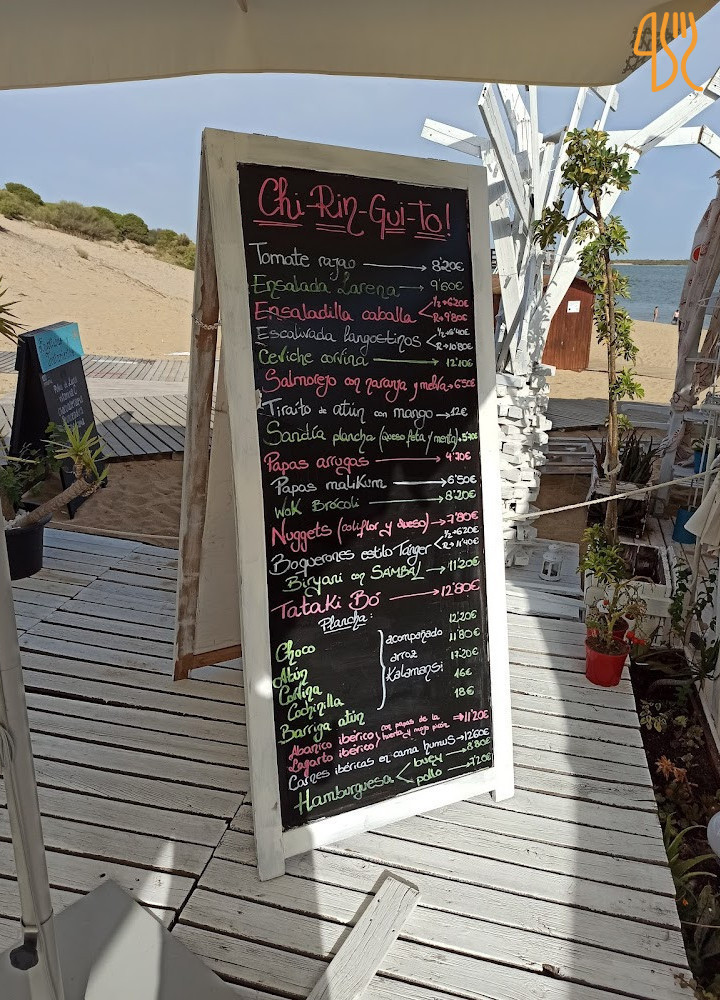 Chi-Rin-Gui-To!
Tomate rajao → 8'20€
Ensalada Larena → 9'60€
Ensaladilla caballa < ½→6'20€
R→9'80€
Escalivada langostinos < ½→6'40€
R→10'80€
Ceviche corvina → 12'10€
Salmorejo con naranja y melva→6'50€
Tiraíto de atún con mango→12€
Sandía plancha (queso feta y menta)
Papas arrugas → 4'20€
Papas malikum → 6'50€
Wok Brócoli → 8'20€
Nuggets (coliflor y queso)→7'80€
Boquerones estilo Tánger < ½→6'20€
R→11'40€
Biryani con SAMBAL → 11'20€
Tataki Bó → 12'80€
Plancha:
Choco 12'20€
Atún 11'80€
Corvina 17'20€
Cochinilla 16€
Barriga atún 18€
acompañado
arroz
Kalamansi
Abanico ibérico
Lagarto ibérico
con papas de la
huerta y mojo picón
→11'20€
Carnes ibéricas en cama humus→12'60€
Hamburguesa < buey → 8'80€
pollo → 7'20€